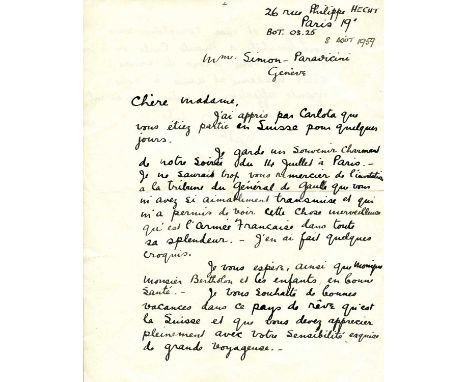 26 rue Philippe HECHT
Paris 19e
BOT. 03.25
8 AOÛT 1959
Mme. Simon-Paravicini
Genève
Chère Madame,
J'ai appris par Carlota que
vous étiez partie en Suisse pour quelques
jours.
Je garde un souvenir charmant
de notre soirée du 14 Juillet à Paris.-
Je ne saurais trop vous remercier de l'invitation
à la tribune du Général de Gaulle que vous
m'avez si aimablement transmise et qui
m'a permis de voir cette chose merveilleuse
qu'est l'Armée Française dans toute
sa splendeur.- J'en ai fait quelques
croquis.
Je vous espère, ainsi que Monique
Monsieur Bertholon et les enfants, en bonne
santé.- Je vous souhaite de bonnes
vacances dans ce pays de rêve qu'est
la Suisse et que vous devez apprécier
pleinement avec votre sensibilité exquise
de grande voyageuse.-